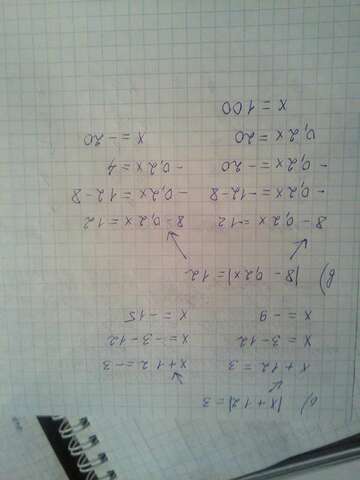 б) |x + 12| = 3
x + 12 = 3 x + 12 = -3
x = 3-12 x = -3-12
x = -9 x = -15
в) |8 - 0,2x| = 12
8 - 0,2x = -12 8 - 0,2x = 12
-0,2x = -12-8 -0,2x = 12-8
-0,2x = -20 -0,2x = 4
0,2x = 20 x = -20
x = 100